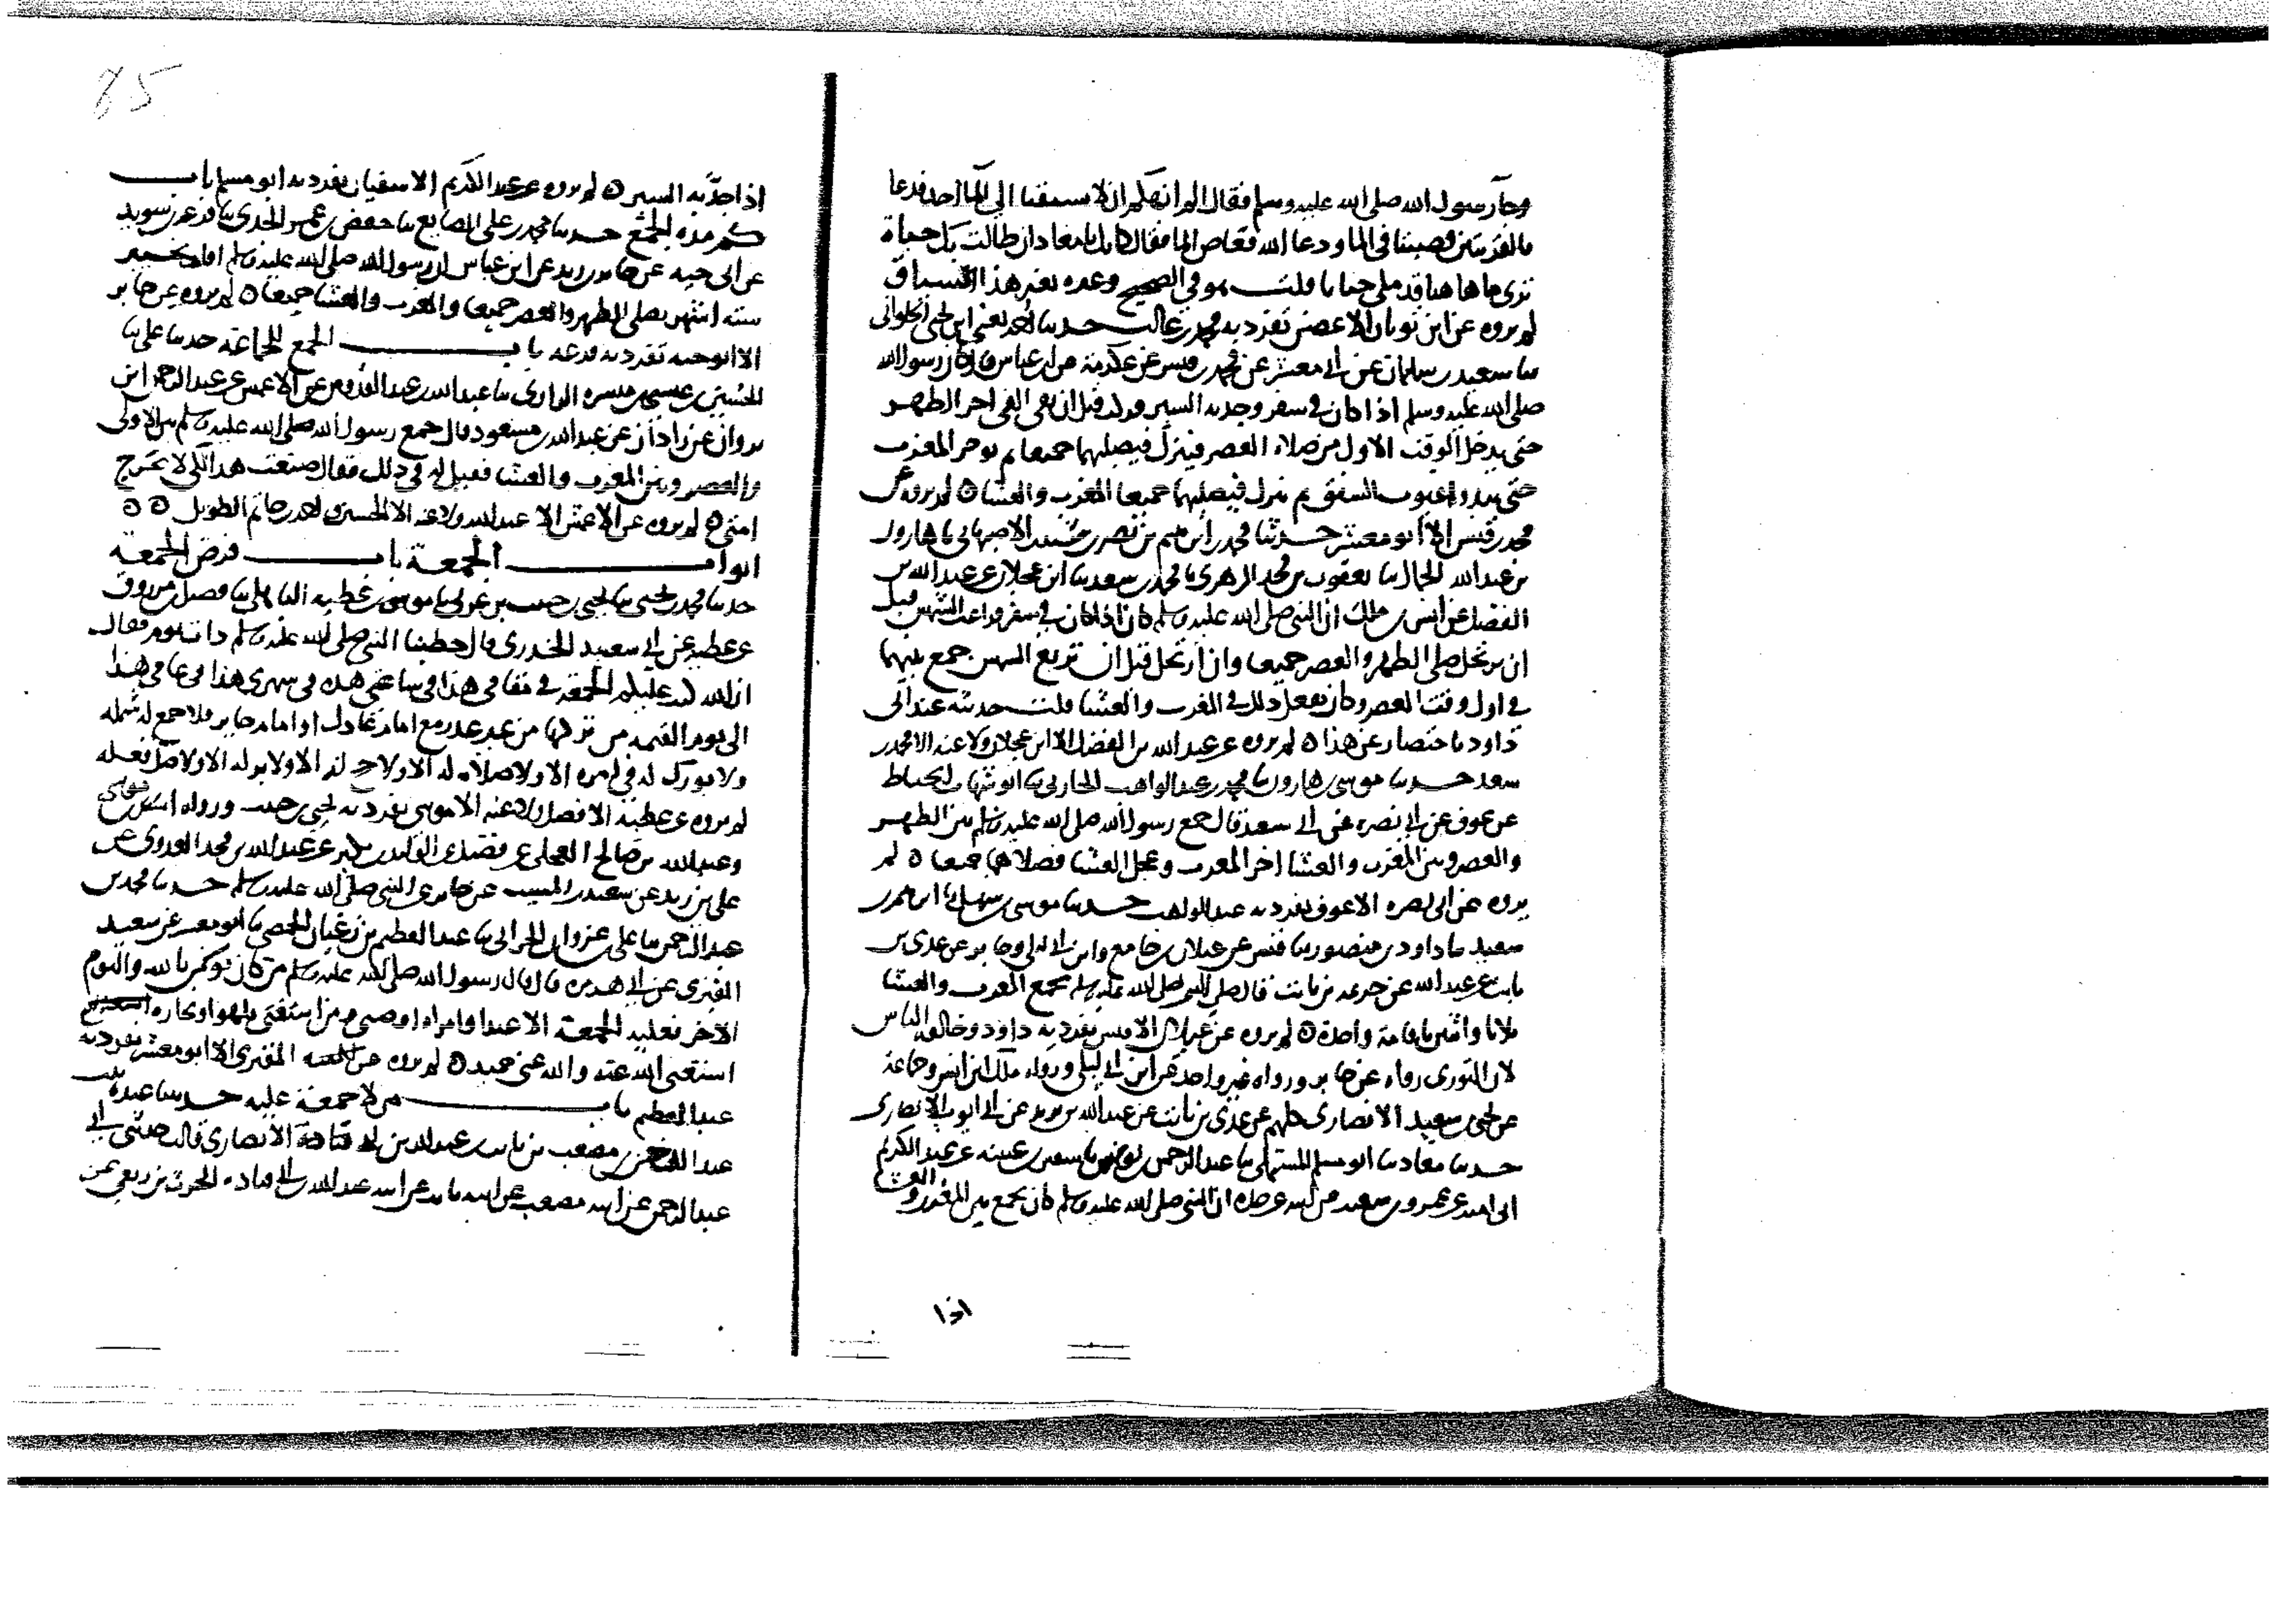 وجا رسول الله صلى الله عليه وسلم فقال الم انهكم ان لا يسبقنا الى الما احد فدعا
بالقدحين فصبتا في الما ودعا الله ففاض الما فقال كانك يا معاذ ان طالت بك حياة
ترى ما هاهنا قد ملي جنانا قلت هو في الصحيح وغيره بغير هذا السياق
لم يروه عن ابن ثوبان الا غصن تفرد به محمد بن غالب حدثنا احمد يعني ابن يحيى الحلواني
ثنا سعيد بن سليمان عن ابي معشر عن محمد بن قيس عن عكرمة عن ابن عباس قال كان رسول الله
صلى الله عليه وسلم اذا كان في سفر وجد به السير فراح قبل ان يفي الفي اخر الظهر
حتى يدخل الوقت الاول من صلاة العصر فينزل فيصليهما جميعا ثم يوخر المغرب
حتى يبدو غيوب الشفق ثم ينزل فيصليهما جميعا المغرب والعشا ٥ لم يروه عن
محمد بن قيس الا ابو معشر حدثنا محمد بن ابراهيم بن نصر بن شبيب الاصبهاني نا هارون
بن عبد الله الحمال نا يعقوب بن محمد الزهري نا محمد بن سعد نا ابن عجلان عن عبد الله بن
الفضل عن انس بن ملك ان النبي صلى الله عليه وسلم كان اذا كان في سفر فزاغت الشمس قبل
ان يرتحل صلى الظهر والعصر جميعا وان ارتحل قبل ان تزيغ الشمس جمع بينهما
في اول وقت العصر وكان يفعل ذلك في المغرب والعشا قلت حديثه عند ابي
داود باختصار عن هذا ٥ لم يروه عن عبد الله بن الفضل الا ابن عجلان ولا عنه الا محمد بن
سعد حدثنا موسى بن هارون نا محمد بن عبد الواهب الحارثي نا ابو شهاب الحناط
عن عوف عن ابي نضرة عن ابي سعيد قال جمع رسول الله صلى الله عليه وسلم بين الظهر
والعصر وبين المغرب والعشا اخر المغرب وعجل العشا فصلاهما جميعا ٥ لم
يروه عن ابي نضرة الا عوف تفرد به عبد الواهب حدثنا موسى بن سهل نا احمد بن
سعيد نا داود بن منصور نا قيس عن غيلان بن جامع وابن ابي ليلى وجابر عن عدي بن
ثابت عن عبد الله عن خزيمة بن ثابت قال صلى النبي صلى الله عليه وسلم بجمع المغرب والعشا
ثلاثا واثنتين باقامة واحدة ٥ لم يروه عن غيلان الا قيس تفرد به داود وخالفه الناس
لان الثوري رواه عن جابر ورواه غير واحد عن ابن ابي ليلى ورواه ملك بن انس وجماعة
عن يحيى بن سعيد الانصاري كلهم عن عدي بن ثابت عن عبد الله بن يزيد عن ابي ايوب الانصاري
حدثنا معاذ نا ابو مسلم المستملي نا عبد الرحمن بن يونس نا سفين بن عيينة عن عبد الكريم
ابي امية عن عمرو بن سعيد عن ان النبي صلى الله عليه وسلم كان يجمع بين المغرب والعشا
اذا
85
اذا جد به السير ٥ لم يروه عن عبد الكريم الا سفيان تفرد به ابو مسلم باب
كم مدة الجمع حدثنا محمد بن علي الصايغ نا حفص بن عمر الجدي نا قزعة بن سويد
عن ابي حية عن جابر بن زيد عن ابن عباس ان رسول الله صلى الله عليه وسلم اقام بخيبر
ستة اشهر يصلي الظهر والعصر جميعا والمغرب والعشا جميعا ٥ لم يروه عن جابر
الا ابو حية تفرد به قزعة باب الجمع للحاجة حدثنا علي نا
الحسين بن عيسى بن ميسرة الرازي نا عبد الله بن عبد القدوس عن الاعمش عن عبد الرحمن ابن
ثروان عن زاذان عن عبد الله بن مسعود قال جمع رسول الله صلى الله عليه وسلم بين الاولى
والعصر وبين المغرب والعشا فقيل له في ذلك فقال صنعت هذا لكي لا تحرج
امتي ٥ لم يروه عن الاعمش الا عبد الله ولا عنه الا الحسين واحمد بن حاتم الطويل ٥ ٥
ابواب الجمعة باب فرض الجمعة
حدثنا محمد بن يحيى نا يحيى بن حبيب بن عربي نا موسى بن عطية الباهلي نا فضيل بن مرزوق
عن عطية عن ابي سعيد الخدري قال خطبنا النبي صلى الله عليه وسلم ذات يوم فقال
ان الله كتب عليكم الجمعة في مقامي هذا في ساعتي هذه في شهري هذا في عامي هذا
الى يوم القيمة من تركها من غير عذر مع امام عادل او امام جاير فلا جمع له شمله
ولا بورك له في امره الا ولا صلاة له الا ولا حج له الا ولا بر له الا ولا صدقة له
لم يروه عن عطية الا فضيل ولا عنه الا موسى تفرد به يحيى بن حبيب ورواه
وعبد الله بن صالح العجلي عن فضيل عن الوليد بن بكير عن عبد الله بن محمد العدوي عن
علي بن زيد عن سعيد بن المسيب عن جابر عن النبي صلى الله عليه وسلم حدثنا محمد بن
عبد الرحمن نا علي بن غزوان الحراني نا عبد العظيم بن رغبان الحمصي نا ابو معشر عن سعيد
المقبري عن ابي هريرة قال قال رسول الله صلى الله عليه وسلم من كان يومن بالله واليوم
الاخر فعليه الجمعة الا عبدا او امراة او صبي ومن استغنى بلهو او تجارة
استغنى الله عنه والله غني حميد ٥ لم يروه عن المقبري الا ابو معشر تفرد به
عبد العظيم باب من لا جمعة عليه حدثنا عبدة بنت
عبد الرحمن بن مصعب بن ثابت بن عبد الله بن ابي قتادة الانصاري قالت حدثني ابي
عبد الرحمن عن ابيه مصعب عن ابيه ثابت عن ابيه عبد الله بن ابي قتادة الحرث بن ربعي عن